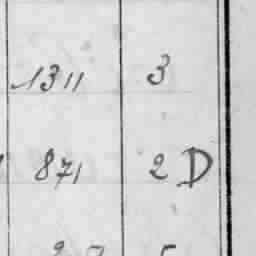 1311 3
871 2 D